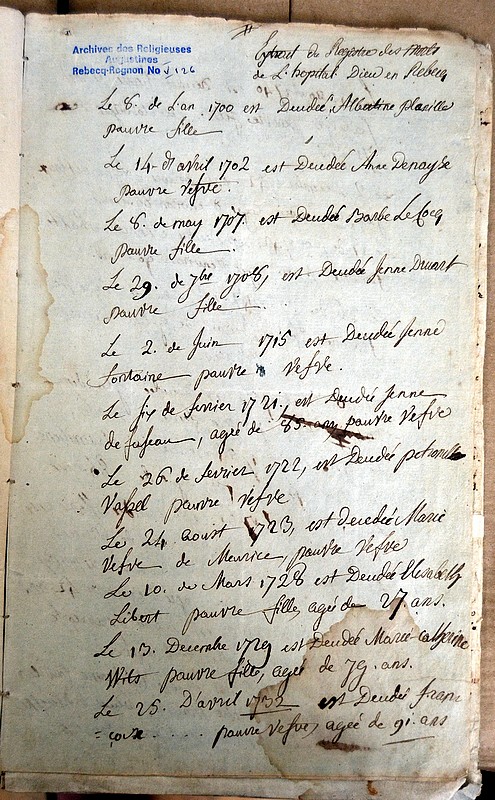 Archives des Religieuses
Augustines
Rebecq-Rognon No J 126
Extrait du Registre des morts
de L'hopital Dieu en Rebecq
Le 8. de L'an 1700 est Decedeé Albertine planille
pauvre fille
Le 14 d'avril 1702 est Decedeé Anne Denayse
pauvre vefve.
Le 8. de may 1707. est Decedeé Barbe Le Cocq
pauvre fille
Le 29. de 7bre 1708, est Decedeé Jenne Druart
pauvre fille
Le 2. de Juin 1715 est Decedeé Jenne
fontaine pauvre vefve.
Le six de fevrier 1721, est Decedeé Jenne
de fuseau, ageé de 85. ans pauvre vefve
Le 26 de fevrier 1722, est Decedeé petronille
Vassel pauvre vefve
Le 24 aoust 1723, est decedeé Marie
vefve de Meurice, pauvre vefve
Le 10. de Mars 1728 est Decedeé Elisabeth
Libert pauvre fille, ageé de 27 ans.
Le 13. Decembre 1729 est Decedeé Marie Catherine
Wits pauvre fille, ageé de 79. ans.
Le 25. D'avril 1732 est Decedeé fran
=çoise ..... pauvre vefve, ageé de 91. ans